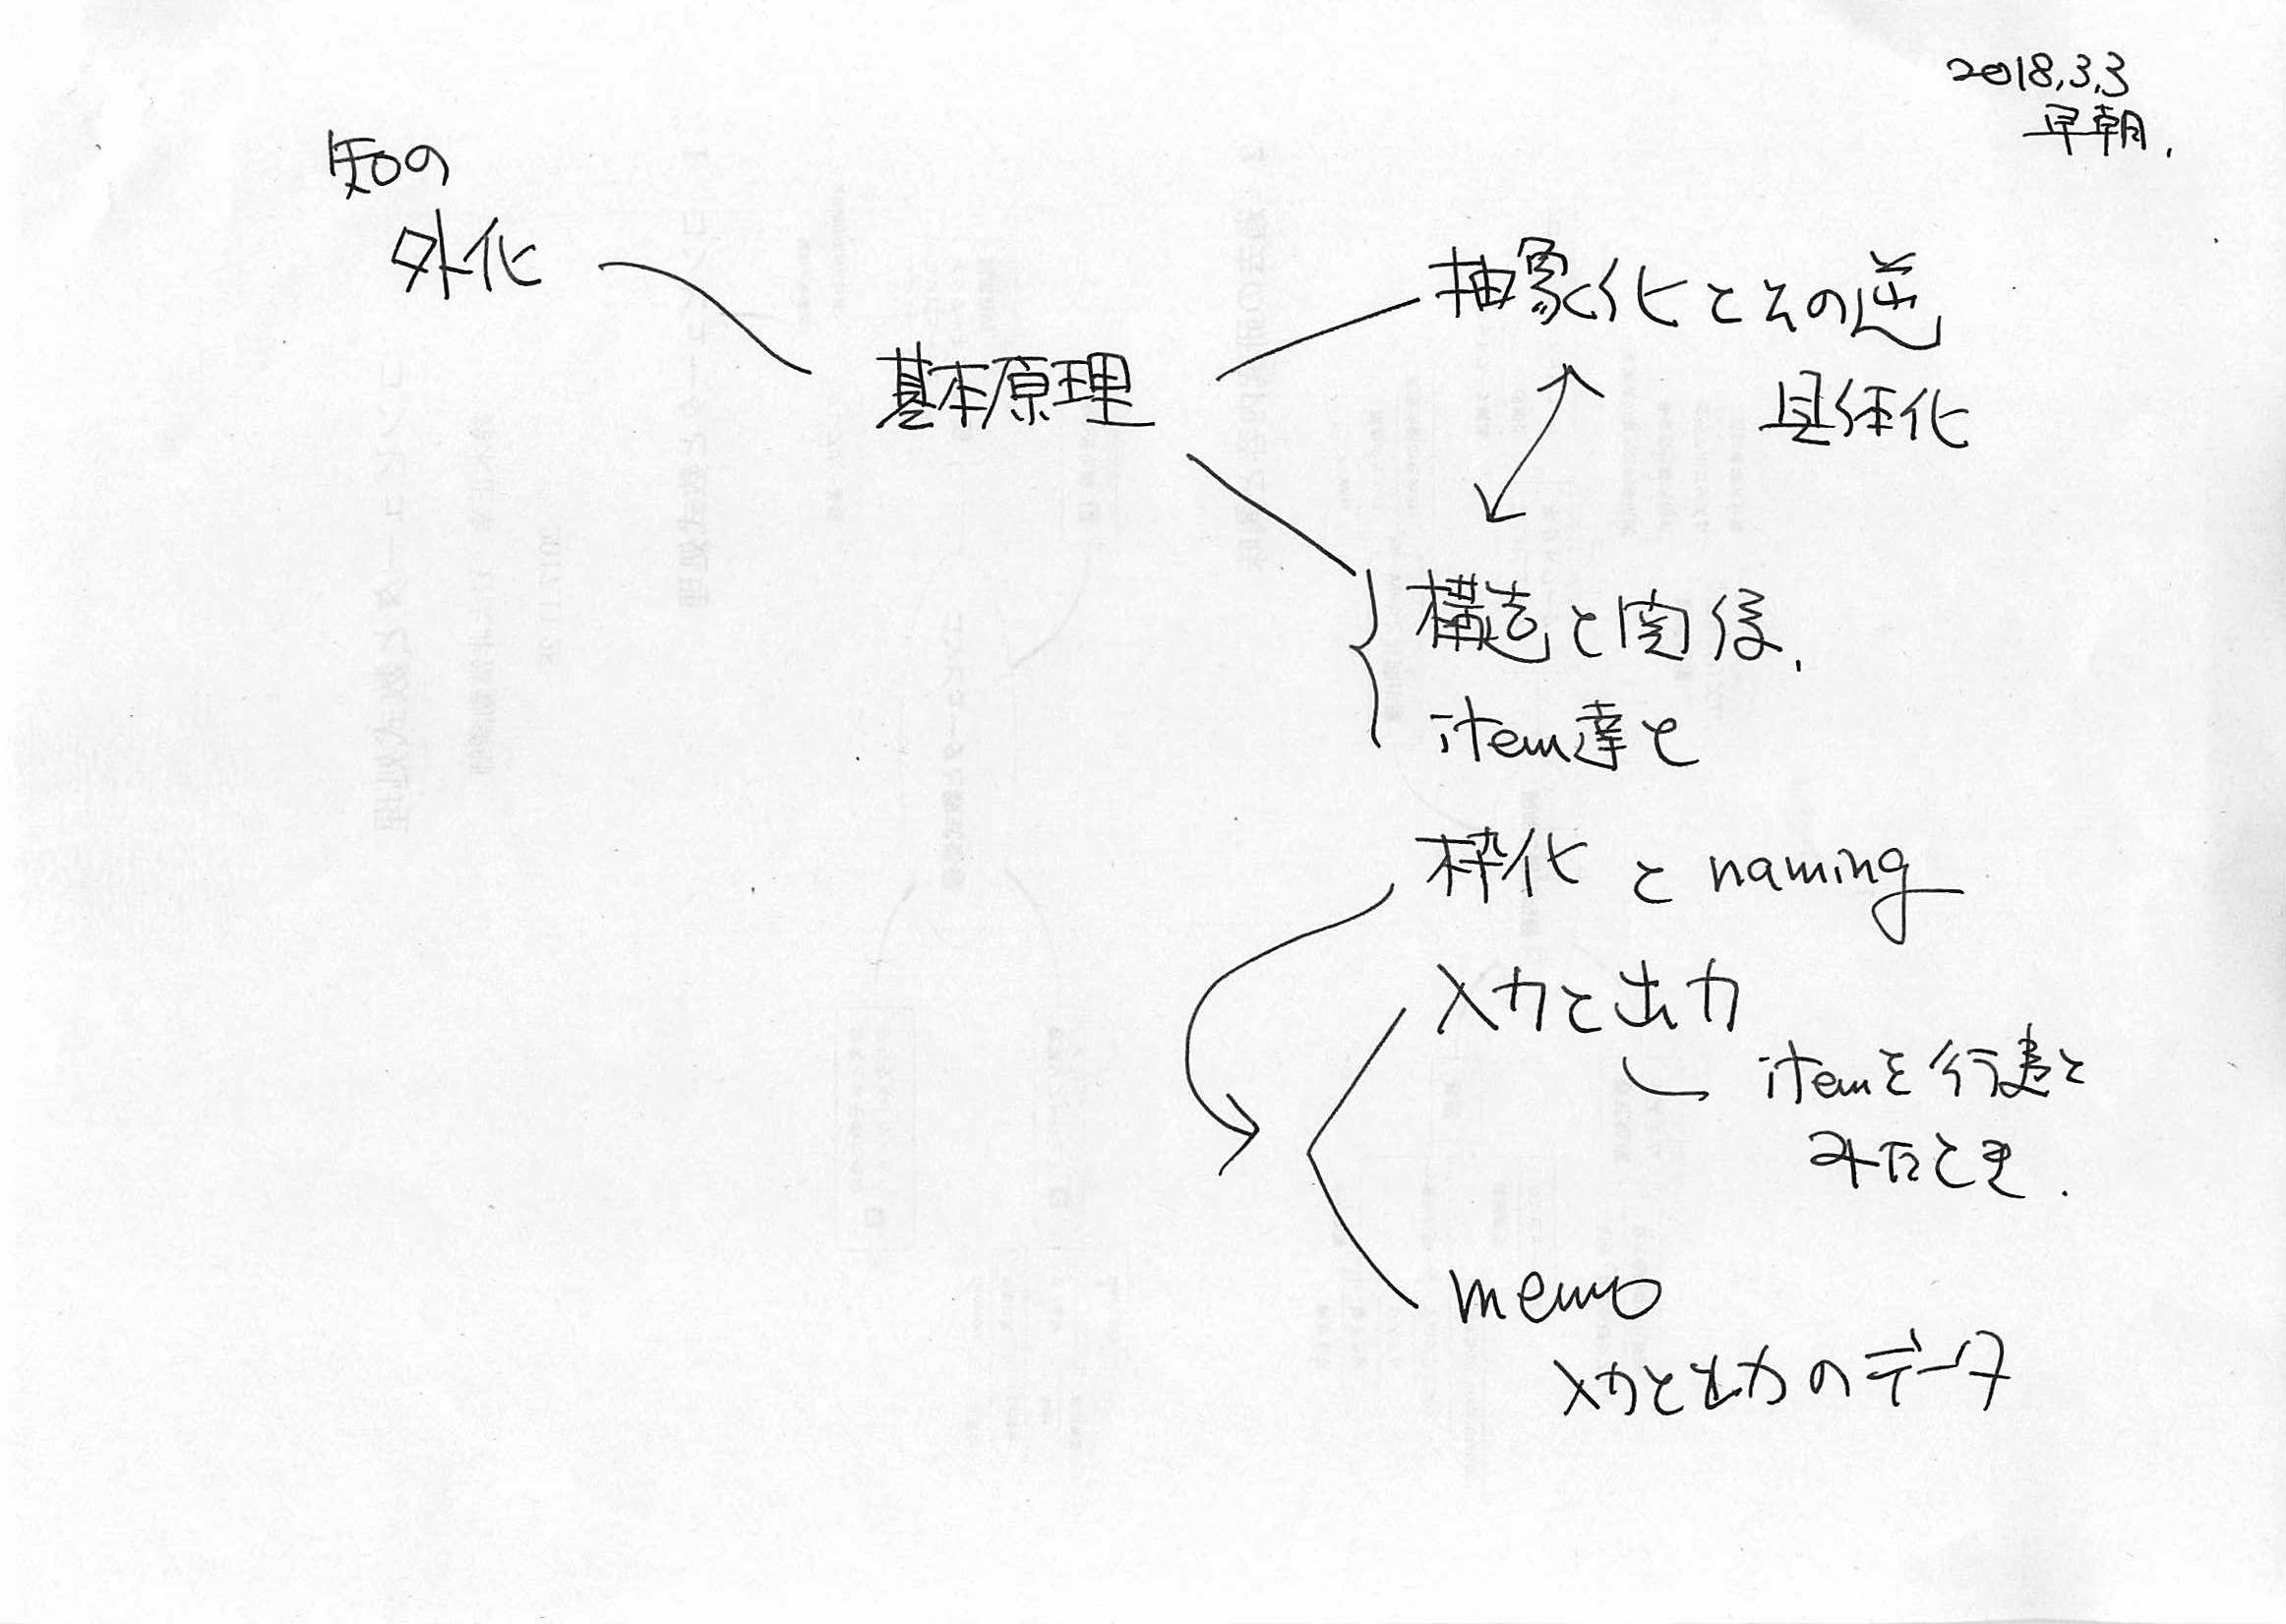 2018.3.3
早朝.
知の
外化
基本原理
抽象化とその逆
具体化
構造と関係.
item達と
枠化 と naming
入力と出力
itemを行為と
みたとき.
memo
入力と出力のデータ